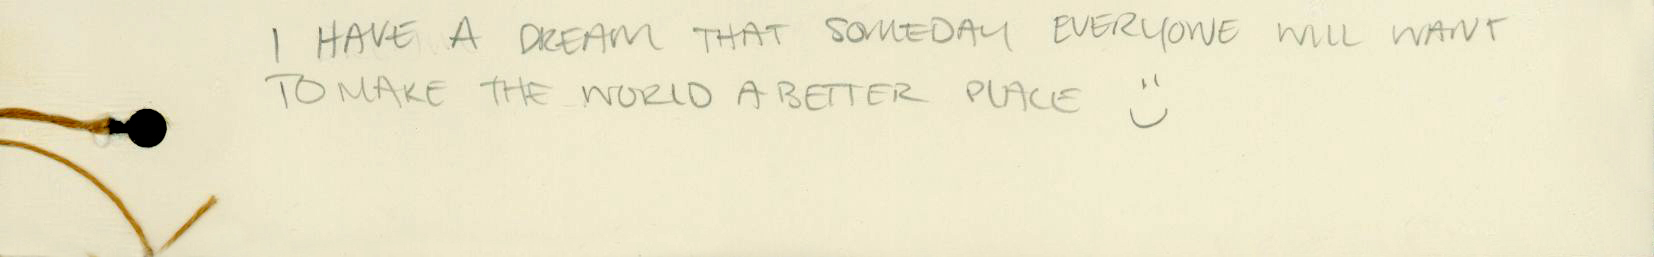 I HAVE A DREAM THAT SOMEDAY EVERYONE WILL WANT
TO MAKE THE WORLD A BETTER PLACE :)